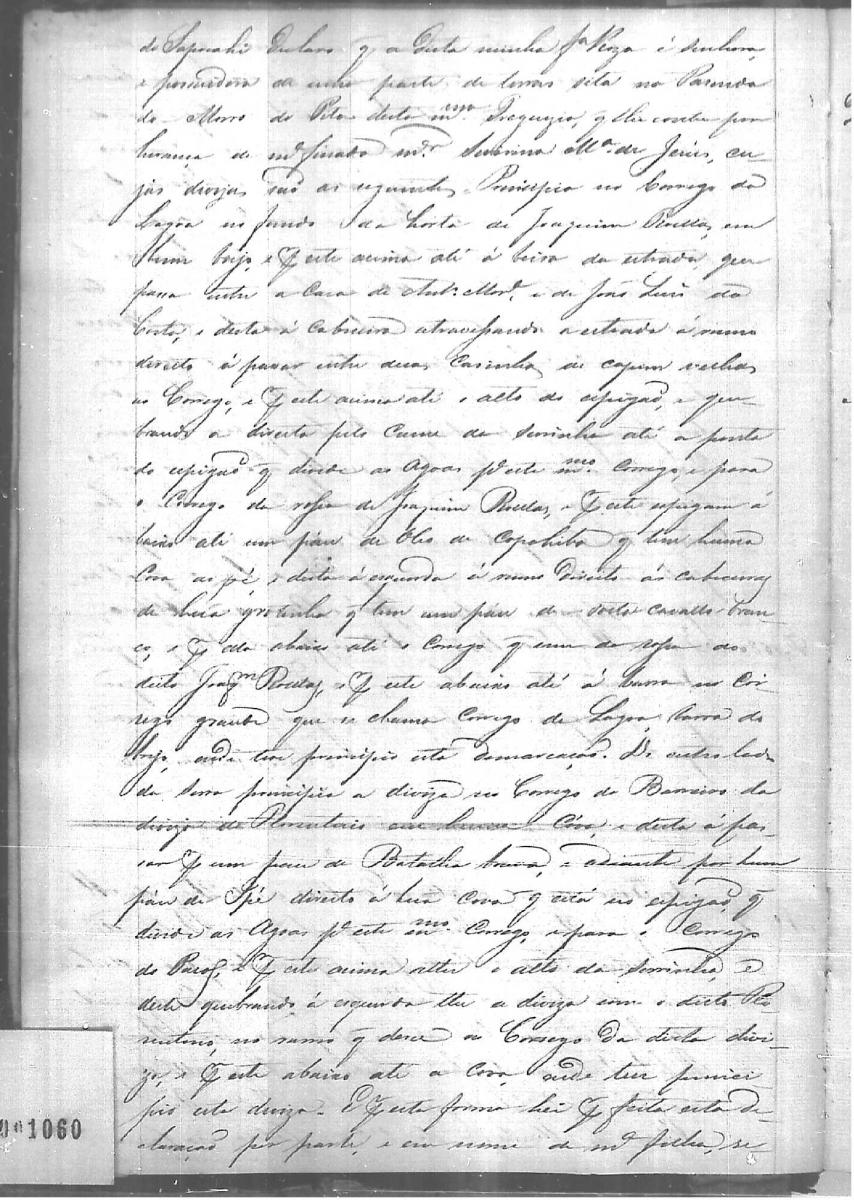 do Sapucahi Declaro q̃ a dicta minha fª Roza é senhora,
e possuidora de uma parte de terras sita na Fazenda
do Morro do Pilar desta mmª. Freguezia, q̃ lhe coube por
herança de mª finada mer. Severina Mª. de Jesus, cu-
jas divizas são as seguintes Principia no Corrego da
Lagôa no fundo da horta de Joaquim Roellas, em
hum brejo, e P este acima até á beira da estrada, que
passa entre a Casa de Antº. Mor.ª, e de João Luis da
Costa, e desta á Cabeceira atravessando a estrada á rumo
direito á passar entre duas Casinhas de capim velhas
ao Corrego, e P este acima até o alto do espigão, e que-
brando a direita pelo Cume da Serrinha até a ponta
do espigão q̃ divide as Agoas pª este mmo. Corrego, e para
o Corrego da rossa de Joaquim Roellas, e P este espigam á
baixo até um páu de Oleo de Copahiba q̃ tem huma
Cova ao pé, e desta á esquerda á rumo direito ás cabeceiras
de huã grotinha q̃ tem um páu de
cavallo bran-
co, e P ela abaixo até o Corrego q̃ vem da rossa do
dicto Joaqm Roellas, e P este abaixo até á barra no Cor-
rego grande que se chama Corrego da Lagoa, barra do
brejo, onde teve principio esta demarcação. De outro lado
da Serra principia a diviza no Corrego do Barreiro da
diviza de
em huma Cova, e desta á pas-
sar P um pau de Batalha
e adiante por hum
páu de Ipé direito á huã Cova q̃ está no espigão, q̃
divide as Agoas pª este mmo. Corrego, e para o Corrego
do Paiol, e P este acima athe o alto da Serrinha, e
deste quebrando á esquerda the a diviza com o dicto
no rumo q̃ desce ao Corrego da dicta divi-
za, e P este abaixo até a Cova, onde teve princi-
pio esta diviza. E P esta forma hei P feita esta de-
claração por parte, e em nome de mª filha, se-
1060